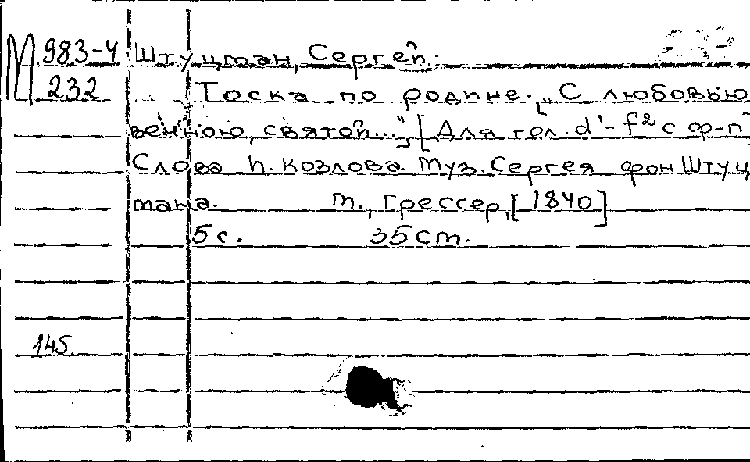 М 983-4 Штуцман, Сергей.
232 Тоска по родине. „С любовью
венною, святой...", [Для гол. d'-f² с ф-п
Слова П. Козлова. Муз. Сергея фон Штуц
мана. М., Грессер, [1840]
5 с. 35 cm.
145